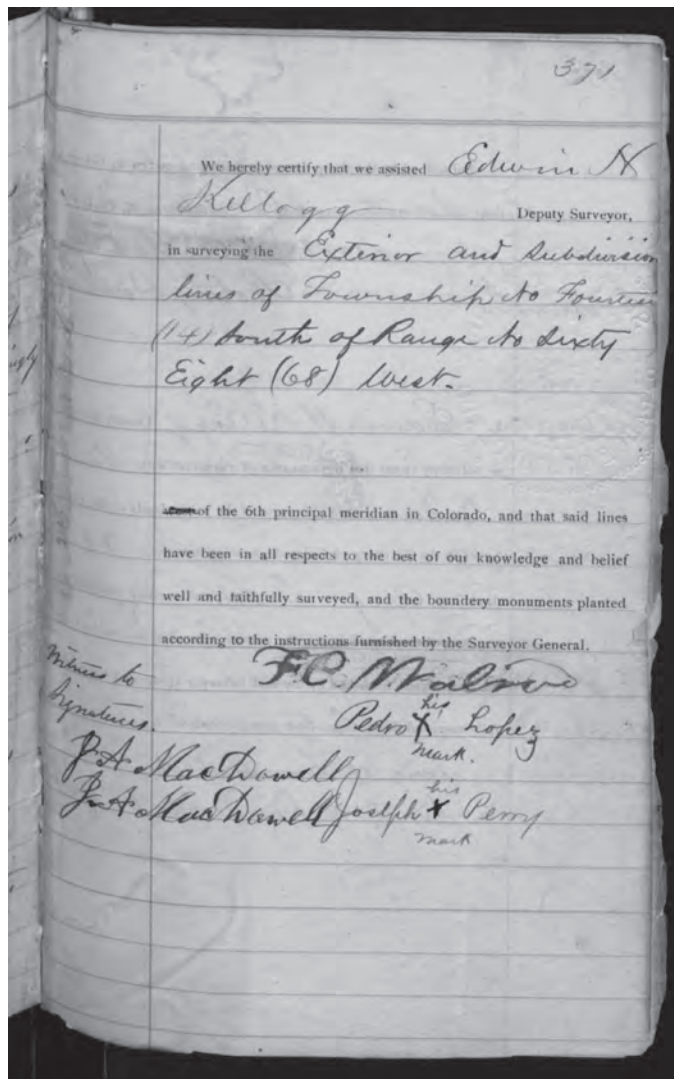 371
We hereby certify that we assisted Edwin H
Kellogg Deputy Surveyor,
in surveying the Exterior and Subdivision
lines of Township No Fourteen
(14) South of Range No Sixty
Eight (68) West.
of the 6th principal meridian in Colorado, and that said lines
have been in all respects to the best of our knowledge and belief
well and faithfully surveyed, and the boundery monuments planted
according to the instructions furnished by the Surveyor General.
Witness to
Signatures.
F.C.
his
Pedro X Lopez
mark.
J A MacDowell
his
J A MacDowell Joseph X Perry
mark